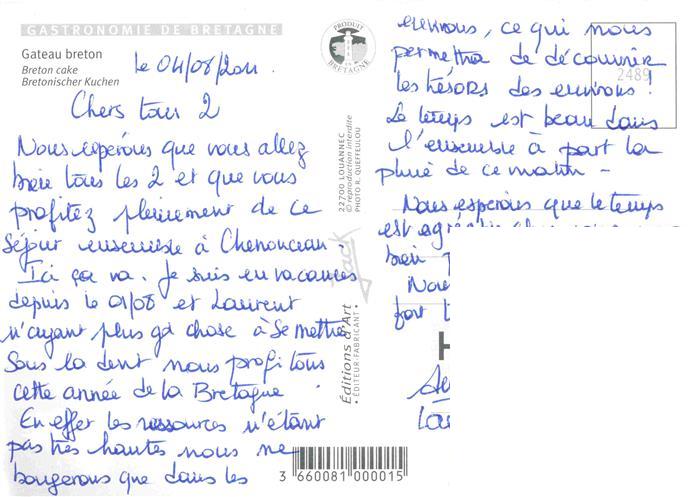 GASTRONOMIE DE BRETAGNE
Gateau breton
Breton cake
Bretonischer Kuchen
PRODUIT
BRETAGNE
le 04/08/2011.
Chers tous 2
Nous espérons que vous allez
bien tous les 2 et que vous
profitez pleinement de ce
séjour ensemble à Chenonceau.
Ici ça va. Je suis en vacances
depuis le 01/08 et Laurent
n'ayant plus gd chose à se mettre
sous la dent nous profitons
cette année de la Bretagne.
En effet les ressources n'étant
pas très hautes nous ne
bougerons que dans les
environs, ce qui nous
permettra de découvrir
les trésors des environs !
Le temps est beau dans
l'ensemble à part la
pluie de ce matin -
Nous espérons que le temps
est
bien
Nous
fort
2489
22700 LOUANNEC
© reproduction interdite
PHOTO R. QUEFFEULOU
Jack
Editions d'Art
• EDITEUR-FABRICANT •
H
3 660081 000015